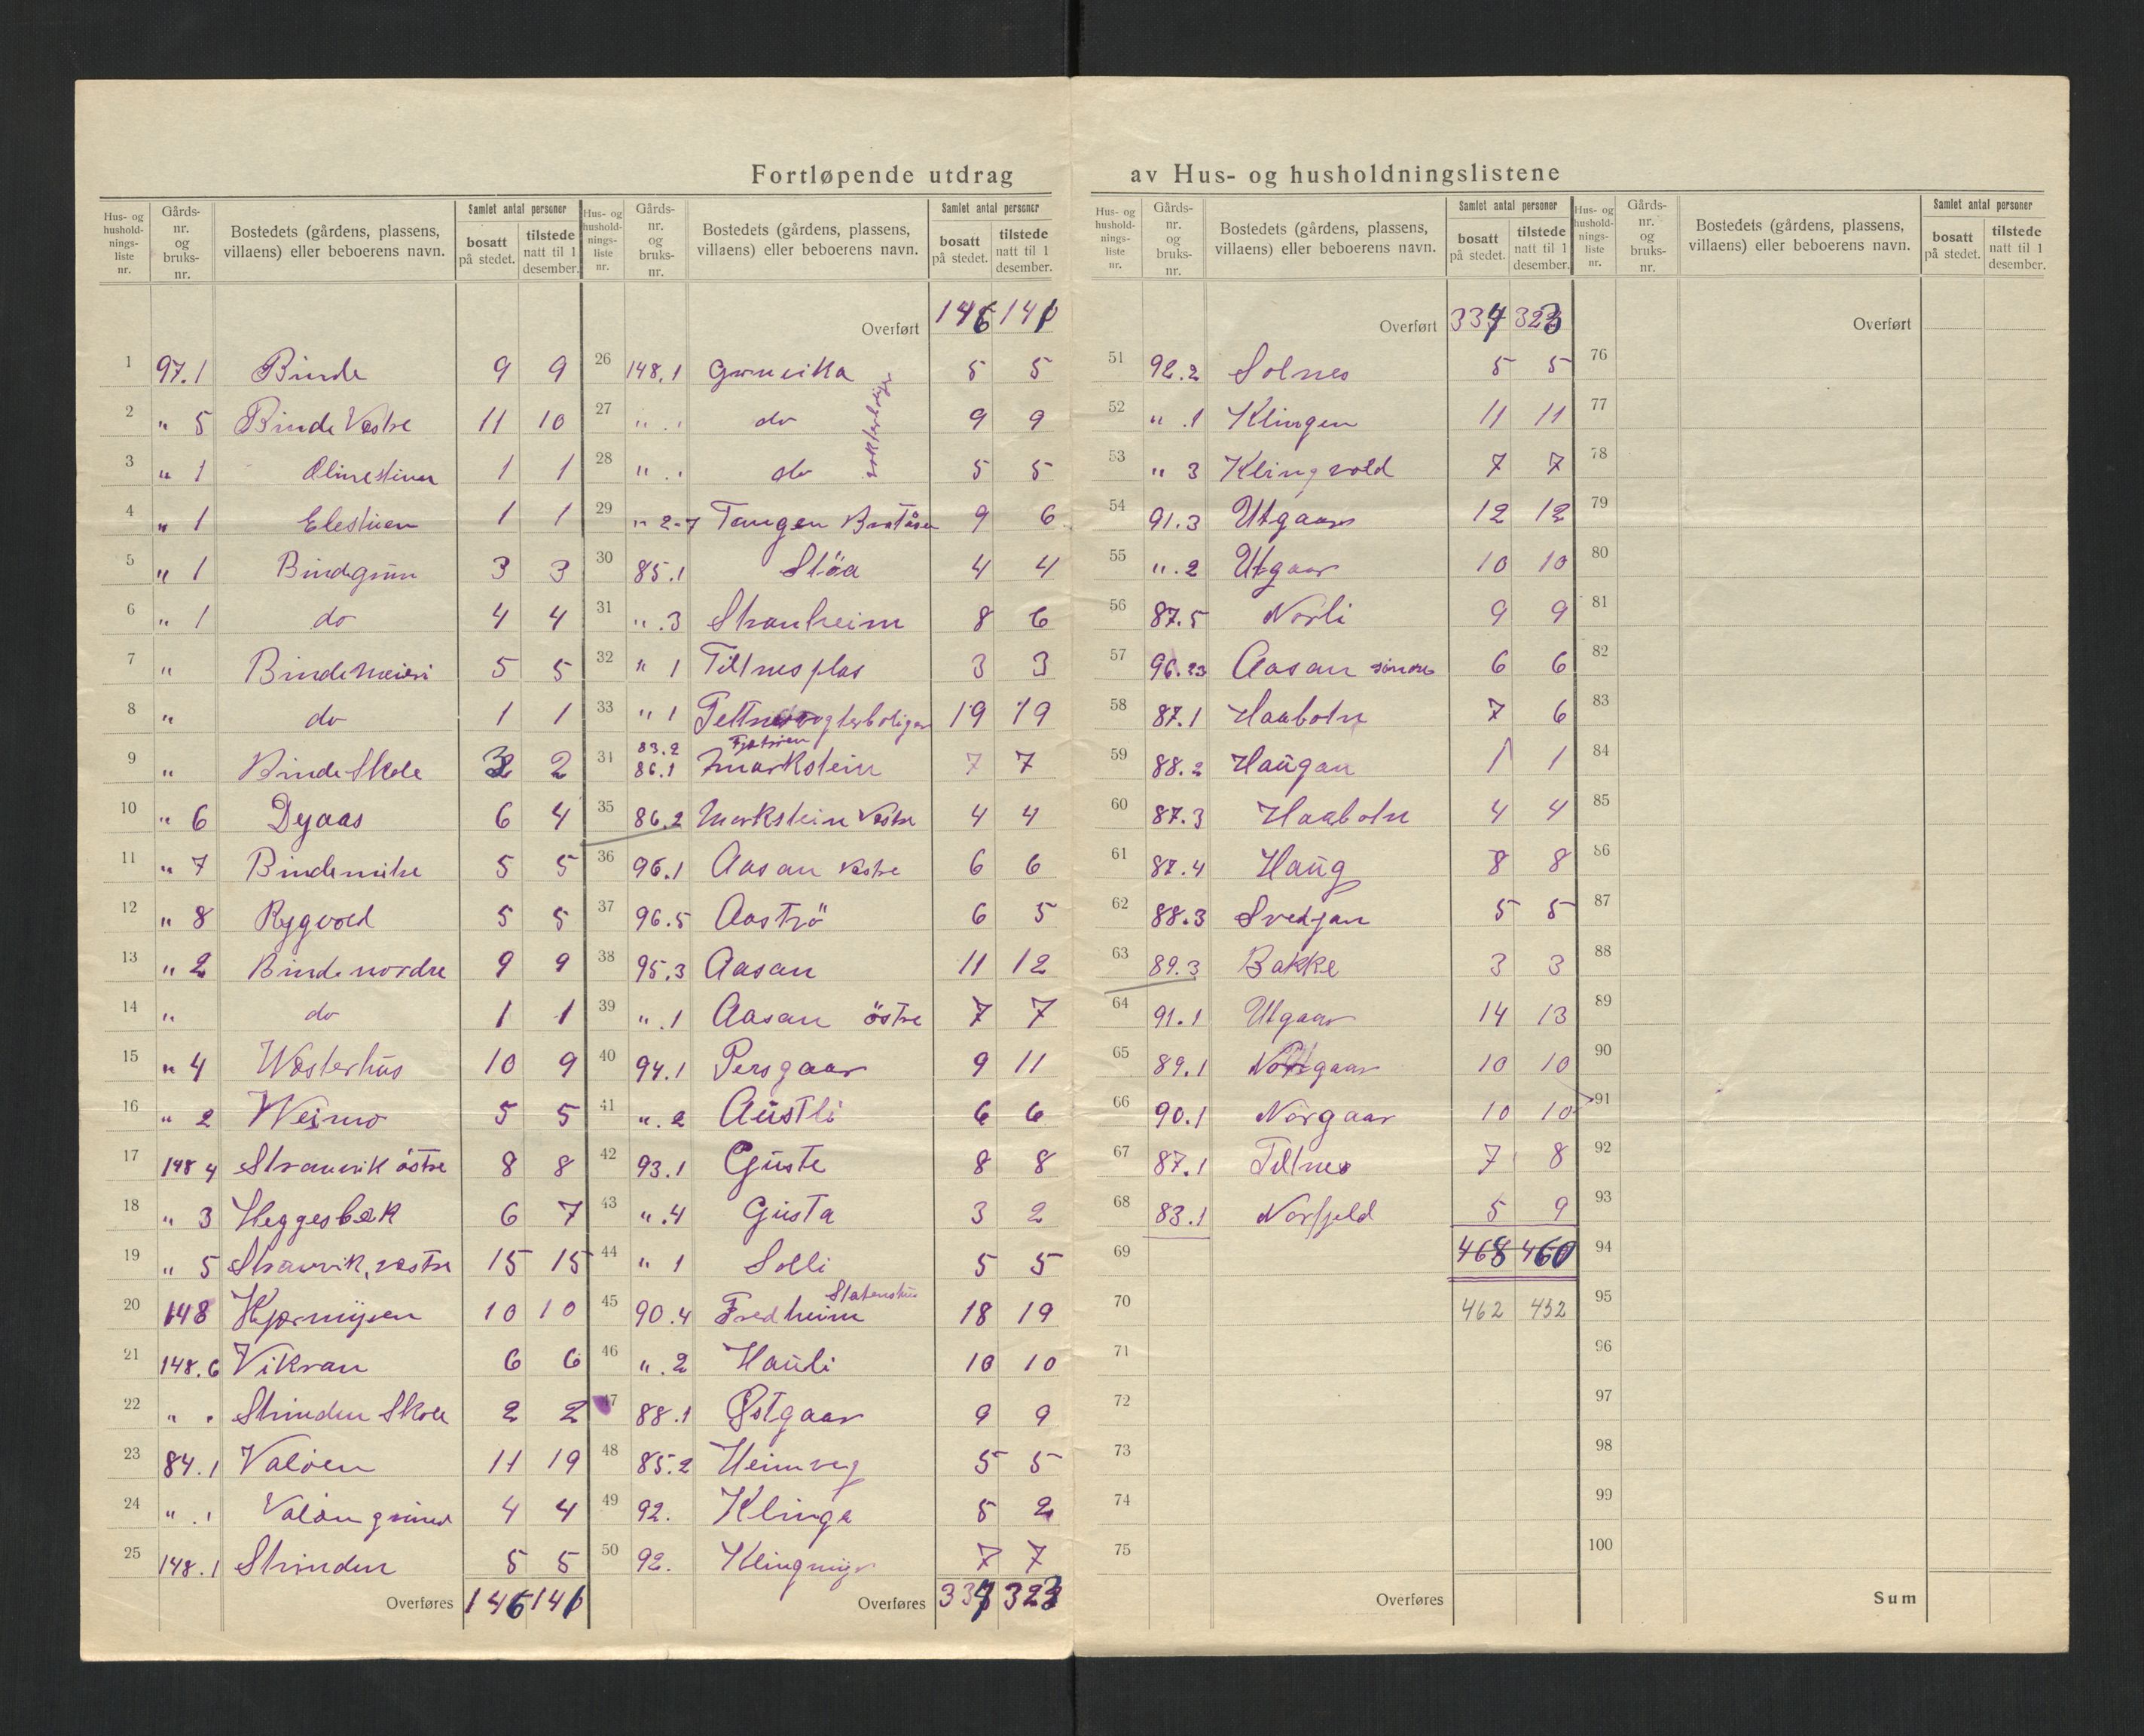 Fortløpende utdrag av Hus- og husholdningslistene
Hus- og hushold-nings-liste nr. Gårds-nr. og bruks-nr. Bostedets (gårdens, plassens, villaens) eller beboerens navn. Samlet antal personer bosatt på stedet. tilstede natt til 1 desember.
1 97.1 Binde 9 9
2 " 5 Binde Vestre 11 10
3 " 1 Olinestuen 1 1
4 " 1 Elestuen 1 1
5 " 1 Bindegrun 3 3
6 " 1 do 4 4
7 " Binde Meieri 5 5
8 " do 1 1
9 " Binde Skole 2
10 " 6 Dyaas 6 4
11 " 7 Bindemitre 5 5
12 " 8 Rygvold 5 5
13 " 2 Binde nordre 9 9
14 " do 1 1
15 " 4 Westerhus 10 9
16 " 2 Weimo 5 5
17 148 4 Straumvik östre 8 8
18 " 3 Heggesbæk 6 7
19 " 5 Straumvik, vestre 15 15
20 148 Kjærmyren 10 10
21 148.6 Vikran 6 6
22 " . Strinden Skole 2 2
23 84.1 Valöen 11 19
24 " .1 4 4
25 148.1 Strinden 5 5
Overføres 146 141
Hus- og hushold-nings-liste nr. Gårds-nr. og bruks-nr. Bostedets (gårdens, plassens, villaens) eller beboerens navn. Samlet antal personer bosatt på stedet. tilstede natt til 1 desember.
Overført 146 141
26 148.1 Grunvika 5 5
27 " . do 9 9
28 " . do 5 5
29 " 2-7 Tangen 9 6
30 85.1 Stöa 4 4
31 " .3 Stranheim 8 6
32 " 1 Tiltnesplas 3 3
33 " 1 19 19
34 83.2 86.1 Markstein 7 7
35 86.2 Markstein Vestre 4 4
36 96.1 Aasan Vestre 6 6
37 96.5 Aaströ 6 5
38 95.3 Aasan 11 12
39 " .1 Aasan östre 7 7
40 94.1 Persgaar 9 11
41 " .2 Austli 6 6
42 93.1 Guste 8 8
43 " .4 Gusta 3 2
44 " 1 Solli 5 5
45 90.4 Fredheim 18 19
46 " .2 Hauli 10 10
47 88.1 Østgaar 9 9
48 85.2 Heimveg 5 5
49 92. Klinga 5 2
50 92. Klingmyr 7 7
Overføres 334 323
Hus- og hushold-nings-liste nr. Gårds-nr. og bruks-nr. Bostedets (gårdens, plassens, villaens) eller beboerens navn. Samlet antal personer bosatt på stedet. tilstede natt til 1 desember.
Overført 334 323
51 92.2 Solnes 5 5
52 " .1 Klingen 11 11
53 " 3 Klingvold 7 7
54 91.3 Utgaar 12 12
55 " .2 Utgaar 10 10
56 87.5 Norli 9 9
57 96.23 Aasan 6 6
58 87.1 Haaboln 7 6
59 88.2 Haugan 1 1
60 87.3 Haaboln 4 4
61 87.4 Haug 8 8
62 88.3 Svedjan 5 5
63 89.3 Bakke 3 3
64 91.1 Utgaar 14 13
65 89.1 10 10
66 90.1 Norgaar 10 10
67 87.1 Tiltnes 7 8
68 83.1 Norfjeld 5 9
69 468 460
70 462 452
71
72
73
74
75
Overføres
Hus- og hushold-nings-liste nr. Gårds-nr. og bruks-nr. Bostedets (gårdens, plassens, villaens) eller beboerens navn. Samlet antal personer bosatt på stedet. tilstede natt til 1 desember.
Overført
76
77
78
79
80
81
82
83
84
85
86
87
88
89
90
91
92
93
94
95
96
97
98
99
100
Sum